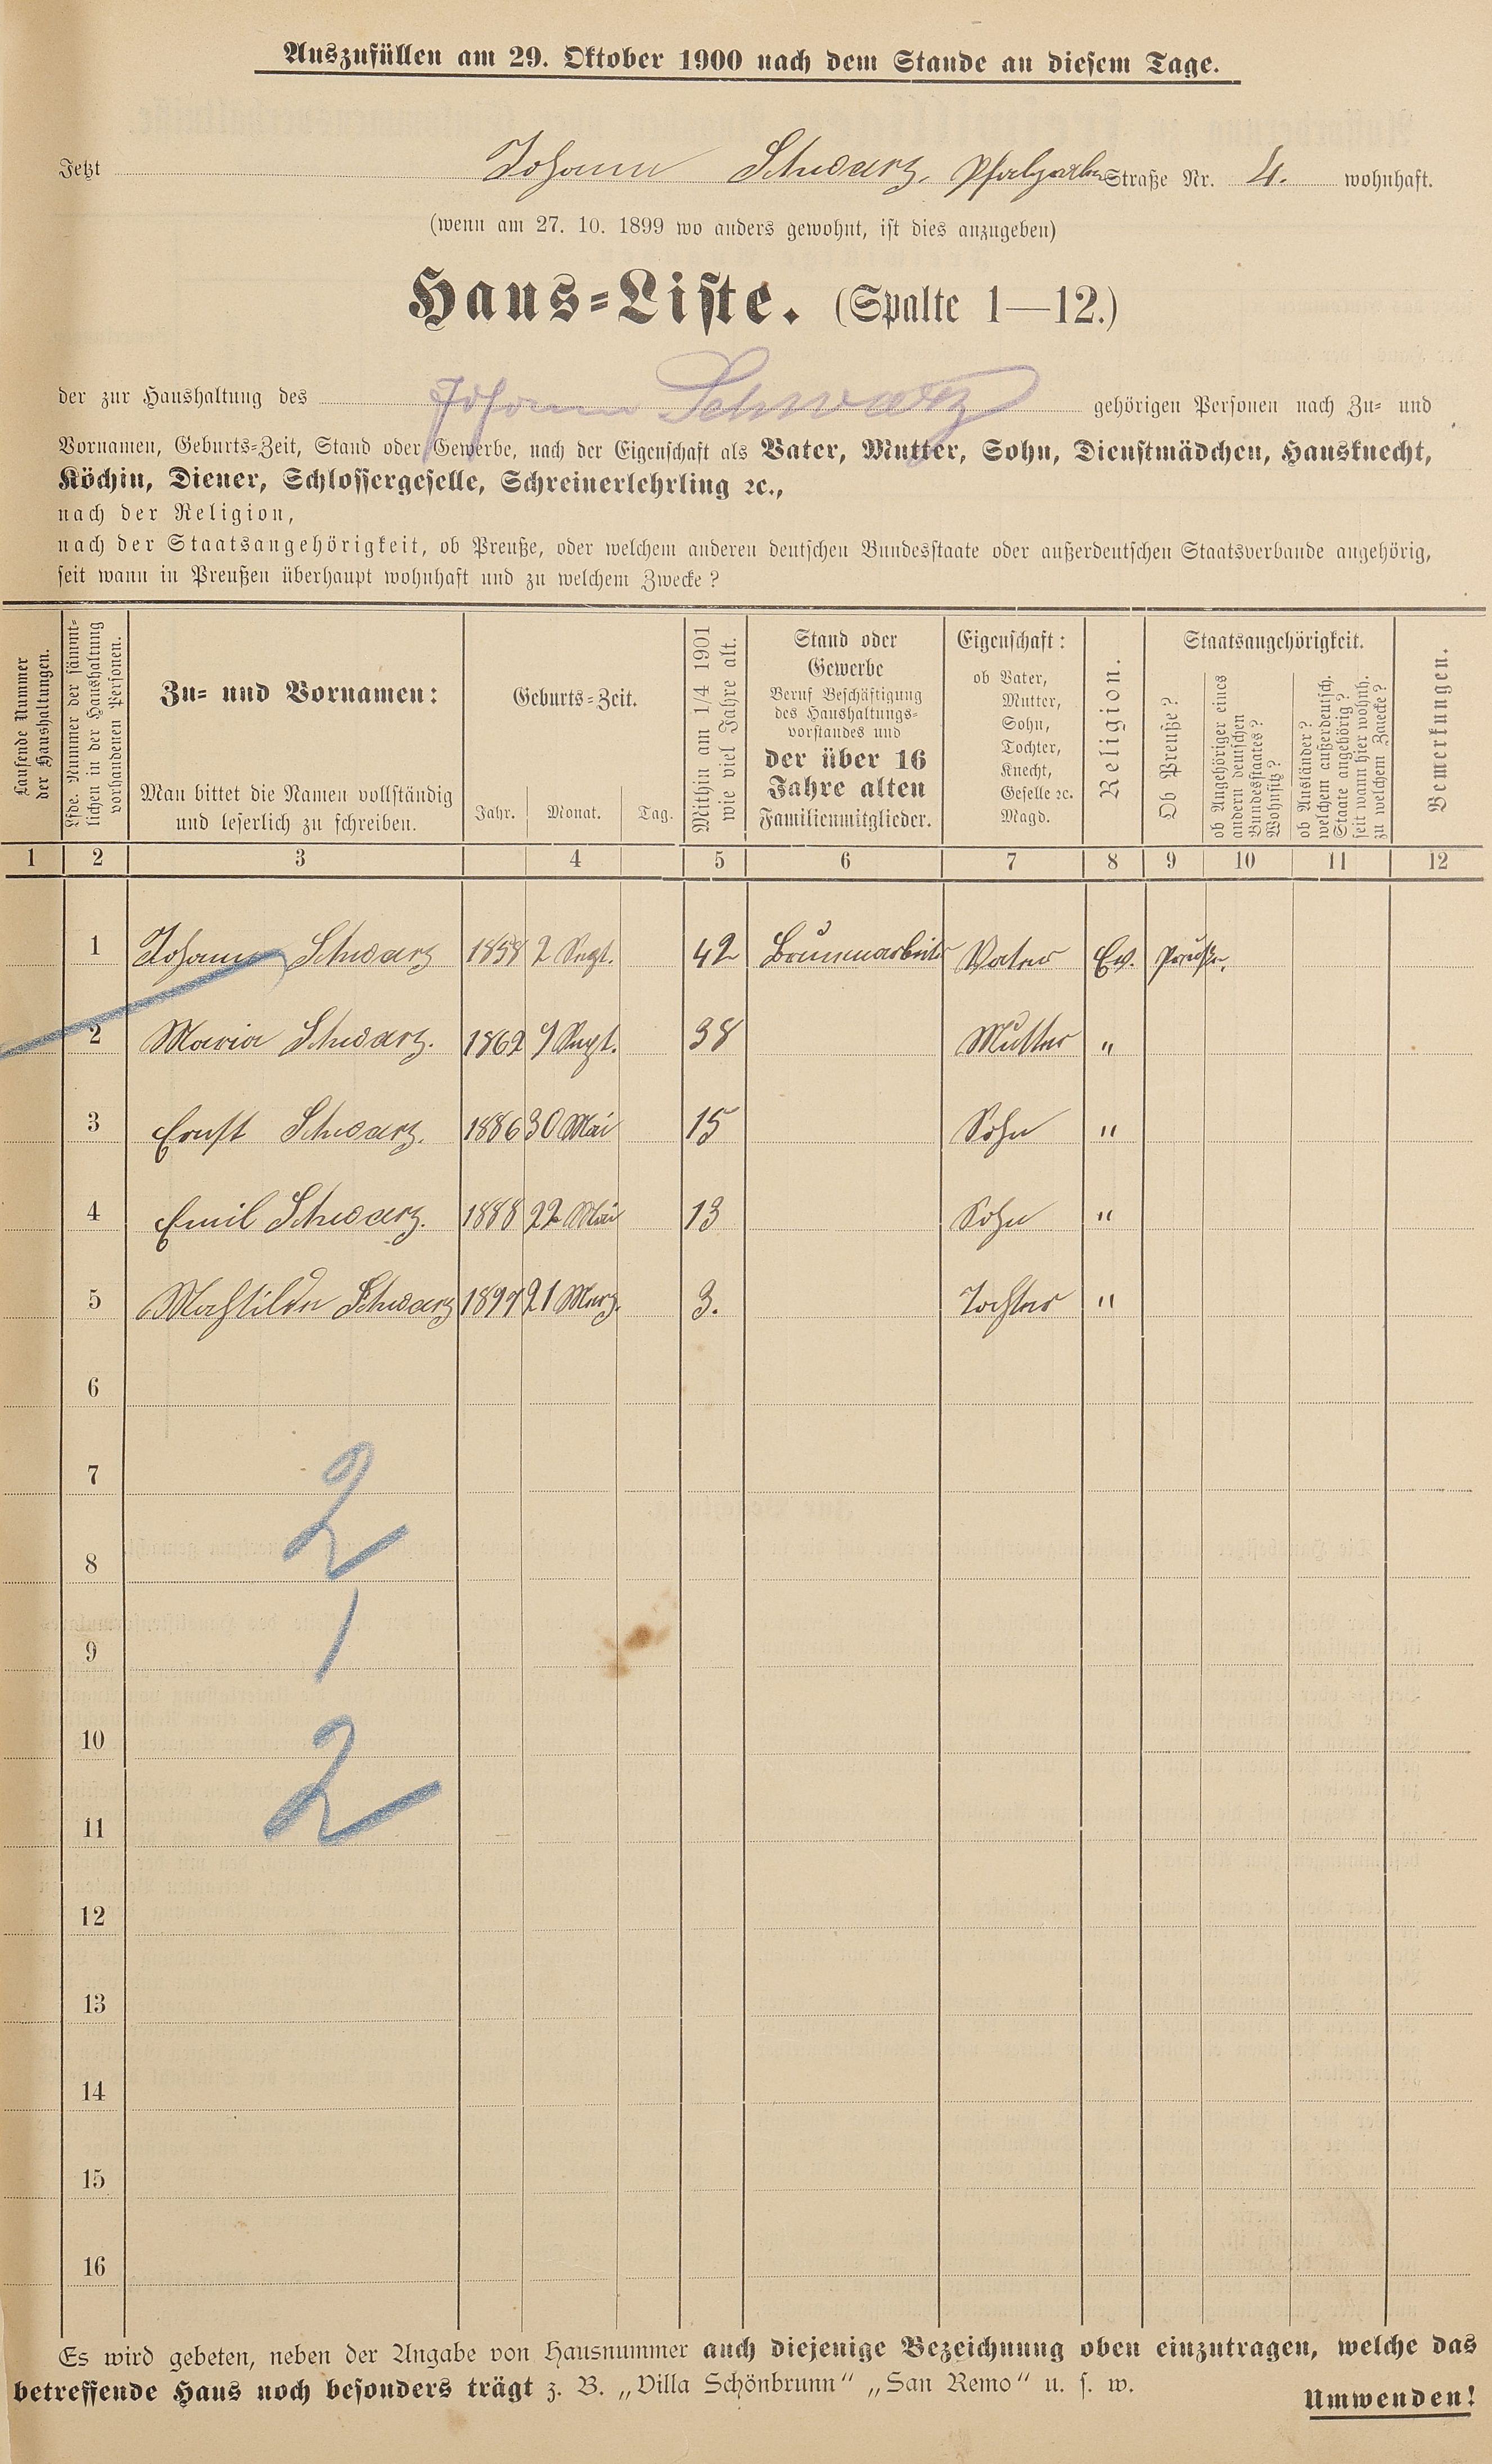 Auszufüllen am 29. Oktober 1900 nach dem Stande an diesem Tage.
Jetzt Johann Schwarz, Straße Nr. 4. wohnhaft.
(wenn am 27. 10. 1899 wo anders gewohnt, ist dies anzugeben)
Haus-Liste. (Spalte 1—12.)
der zur Haushaltung des Johann Schwarz gehörigen Personen nach Zu- und
Vornamen, Geburts-Zeit, Stand oder Gewerbe, nach der Eigenschaft als Vater, Mutter, Sohn, Dienstmädchen, Hausknecht,
Köchin, Diener, Schlossergeselle, Schreinerlehrling ꝛc.,
nach der Religion,
nach der Staatsangehörigkeit, ob Preuße, oder welchem anderen deutschen Bundesstaate oder außerdeutschen Staatsverbande angehörig,
seit wann in Preußen überhaupt wohnhaft und zu welchem Zwecke?
Laufende Nummer
der Haushaltungen.
Lfde. Nummer der sämmt-
lichen in der Haushaltung
vorhandenen Personen.
Zu- und Vornamen:
Man bittet die Namen vollständig
und leserlich zu schreiben.
Geburts-Zeit.
Jahr. Monat. Tag.
Mithin am 1/4 1901
wie viel Jahre alt.
Stand oder
Gewerbe
Beruf Beschäftigung
des Haushaltungs-
vorstandes und
der über 16
Jahre alten
Familienmitglieder.
Eigenschaft:
ob Vater,
Mutter,
Sohn,
Tochter,
Knecht,
Geselle ꝛc.
Magd.
Religion.
Staatsangehörigkeit.
Ob Preuße?
ob Angehöriger eines
andern deutschen
Bundesstaates?
Wohnsitz?
ob Ausländer?
welchem außerdeutsch.
Staate angehörig?
seit wann hier wohnh.
zu welchem Zwecke?
Bemerkungen.
1 2 3 4 5 6 7 8 9 10 11 12
1 Johann Schwarz 1858 2 Sept. 42 Brunnarbeiter Vater Ev. Preuße.
2 Maria Schwarz. 1862 9 Sept. 38 Mutter "
3 Ernst Schwarz. 1886 30 Mai 15 Sohn "
4 Emil Schwarz. 1888 22 Mai 13 Sohn "
5 Mathilde Schwarz 1897 21 Merz. 3. Tochter "
6
7
2
8
1
9
10
2
11
12
13
14
15
16
Es wird gebeten, neben der Angabe von Hausnummer auch diejenige Bezeichnung oben einzutragen, welche das
betreffende Haus noch besonders trägt z. B. „Villa Schönbrunn“ „San Remo“ u. s. w.
Umwenden!